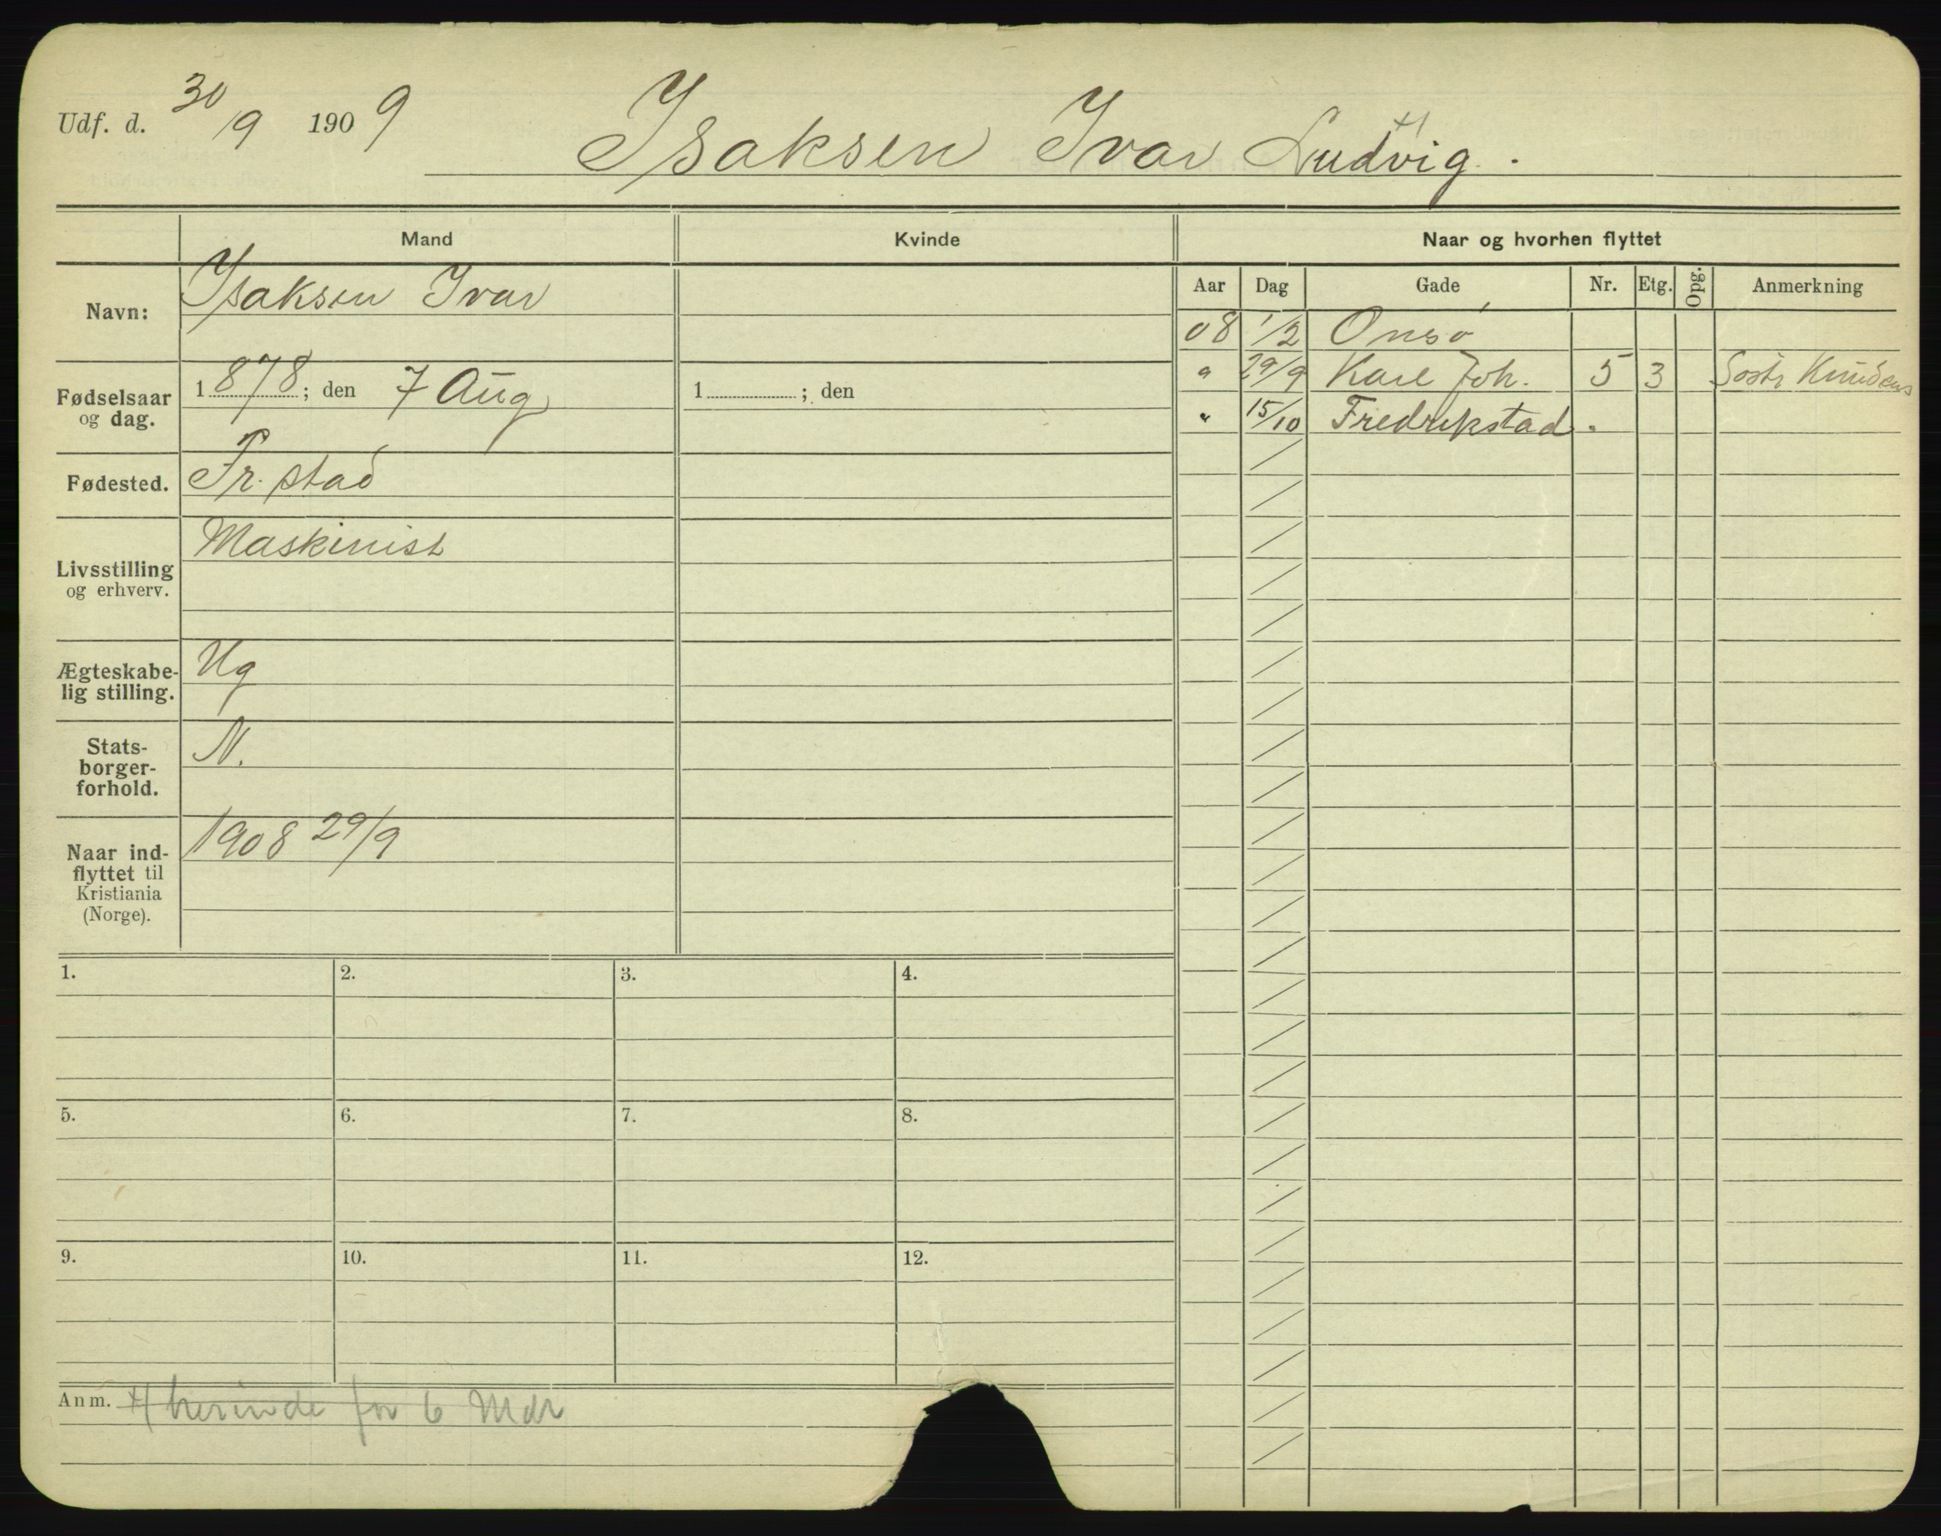 Udf. d. 30/9 1909
Isaksen Ivar Ludvig.
Mand Kvinde Naar og hvorhen flyttet
Aar Dag Gade Nr. Etg. Opg. Anmerkning
Navn: Isaksen Ivar
Fødselsaar og dag. 1878; den 7 Aug 1 ; den
Fødested. Fr.stad
Livsstilling og erhverv. Maskinist
Ægteskabe-
lig stilling. Ug
Stats-
borger-
forhold. N.
Naar ind-
flyttet til
Kristiania
(Norge). 1908 29/9
08 1/2 Onsø
" 29/9 Karl Joh. 5 3 Søstr Knudsens
" 15/10 Fredrikstad.
1. 2. 3. 4.
5. 6. 7. 8.
9. 10. 11. 12.
Anm. herinde for 6 Mdr